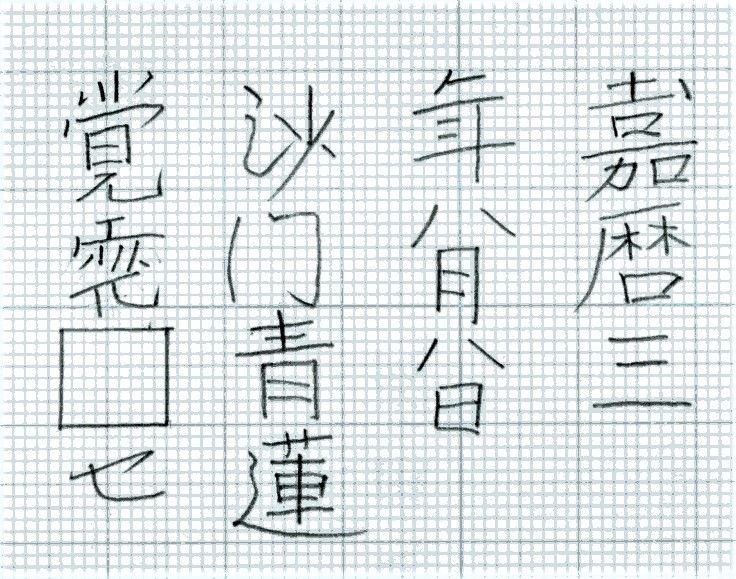 嘉暦三
年八月八日
沙门青蓮
覚霊□七